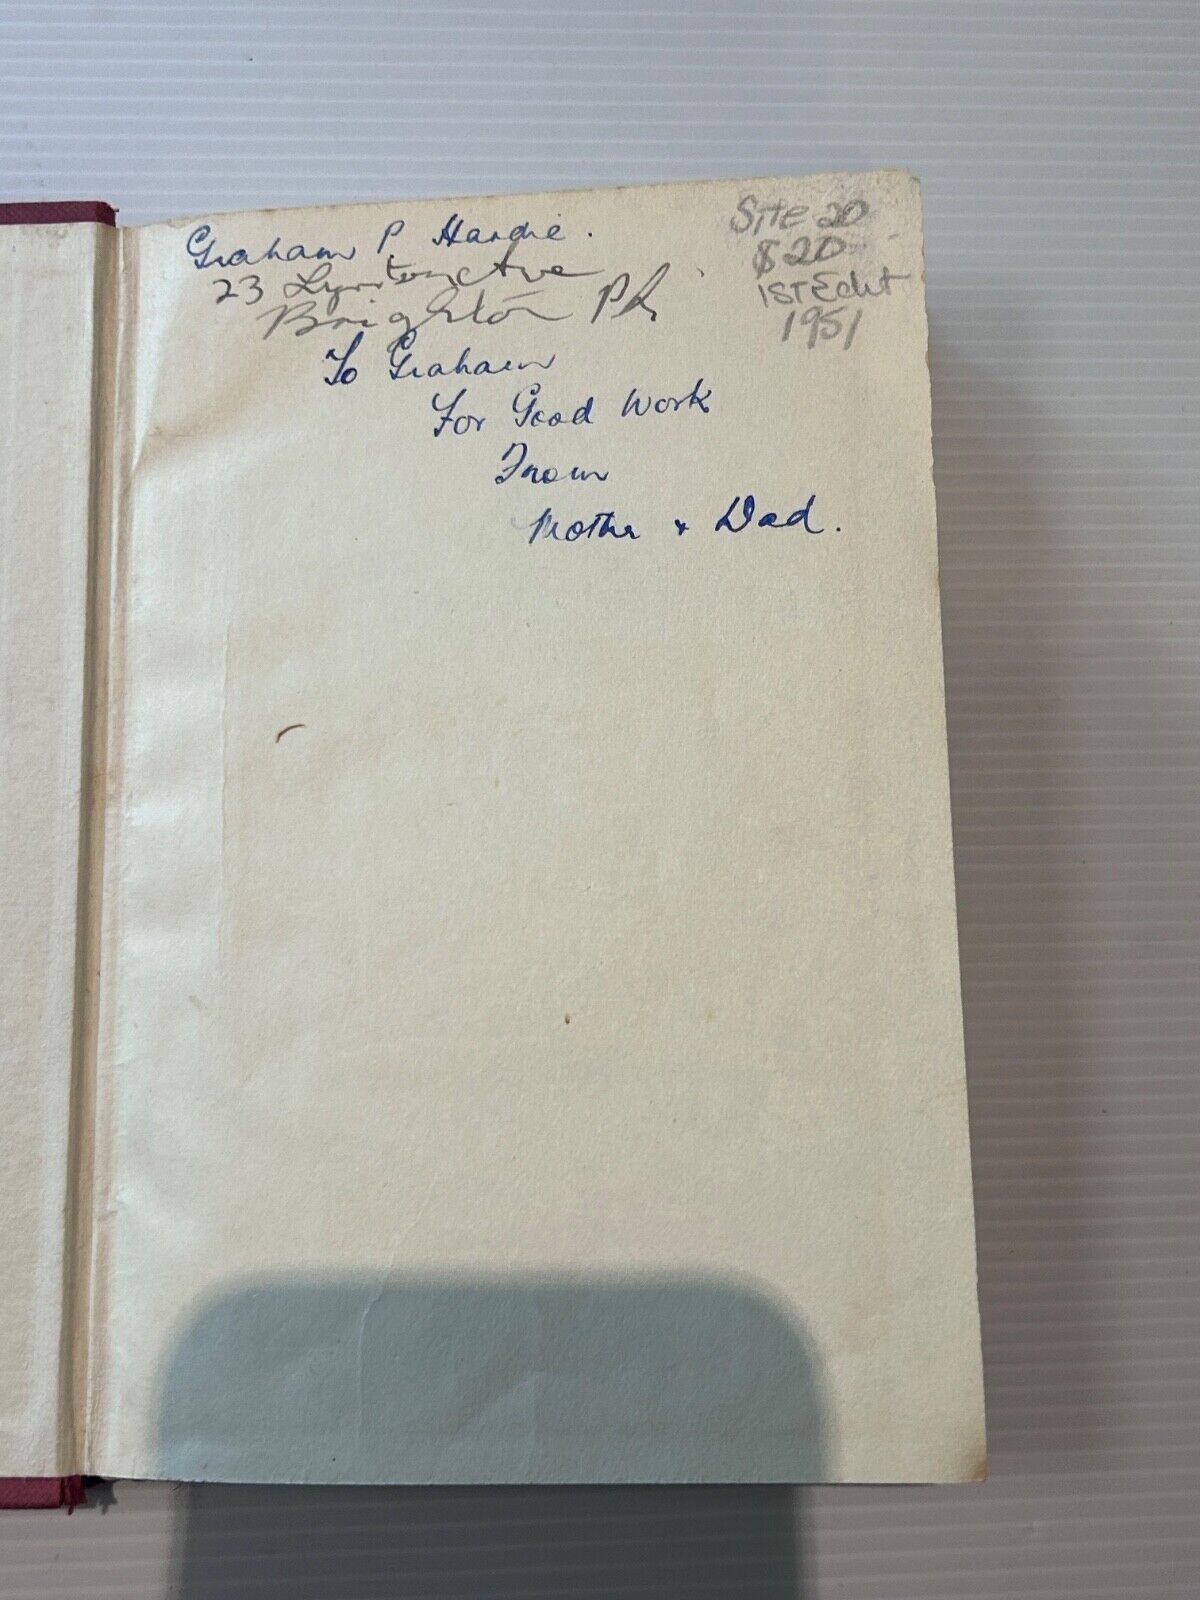 Graham P Hardie.
23 Ave
Brighton
To Graham
For Good Work
From
Mother + Dad.
Site 20
$20
1ST Edit
1951